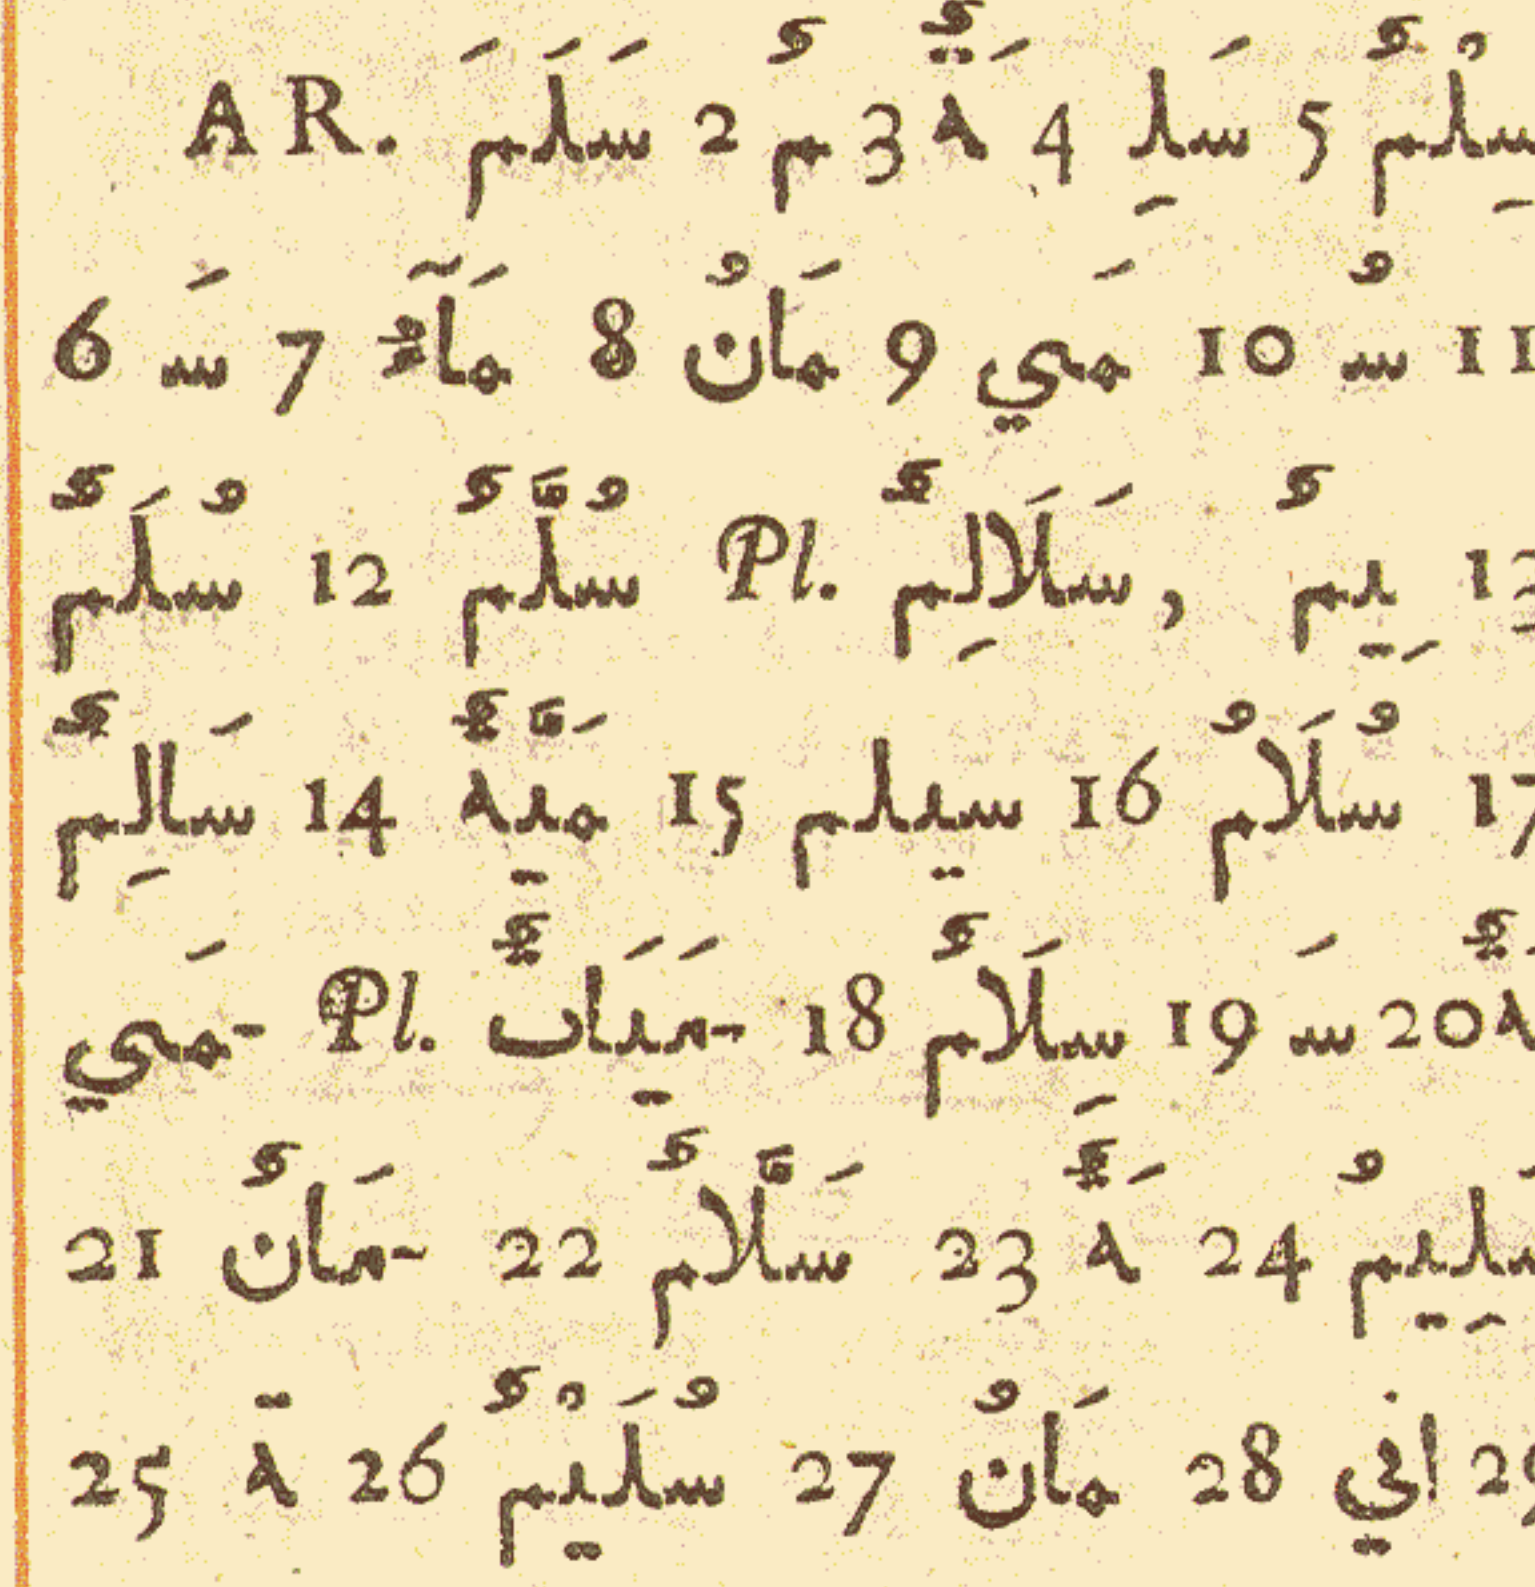 AR. سَلَمَ 2 مٌ 3 ةٌ 4 سَلِ 5 سِلْمٌ
6 سَ 7 مَآءُ 8 مَانُ 9 مَي 10 سُ 11
سُلَمٌ 12 سُلَّمٌ Pl. سَلَالِمٌ, يِمٌ
سَالِمٌ 14 مَيَّةٌ 15 سيلم 16 سُلَامُ 17
مَي- Pl. مَيَاتٌ- 18 سَلَامٌ 19 سَ 20 ةٌ
21 مَانٌ- 22 سَلَّامٌ 23 ةٌ 24 سلِيمُ
25 ة 26 سُلَيْمٌ 27 مَانُ 28 اني